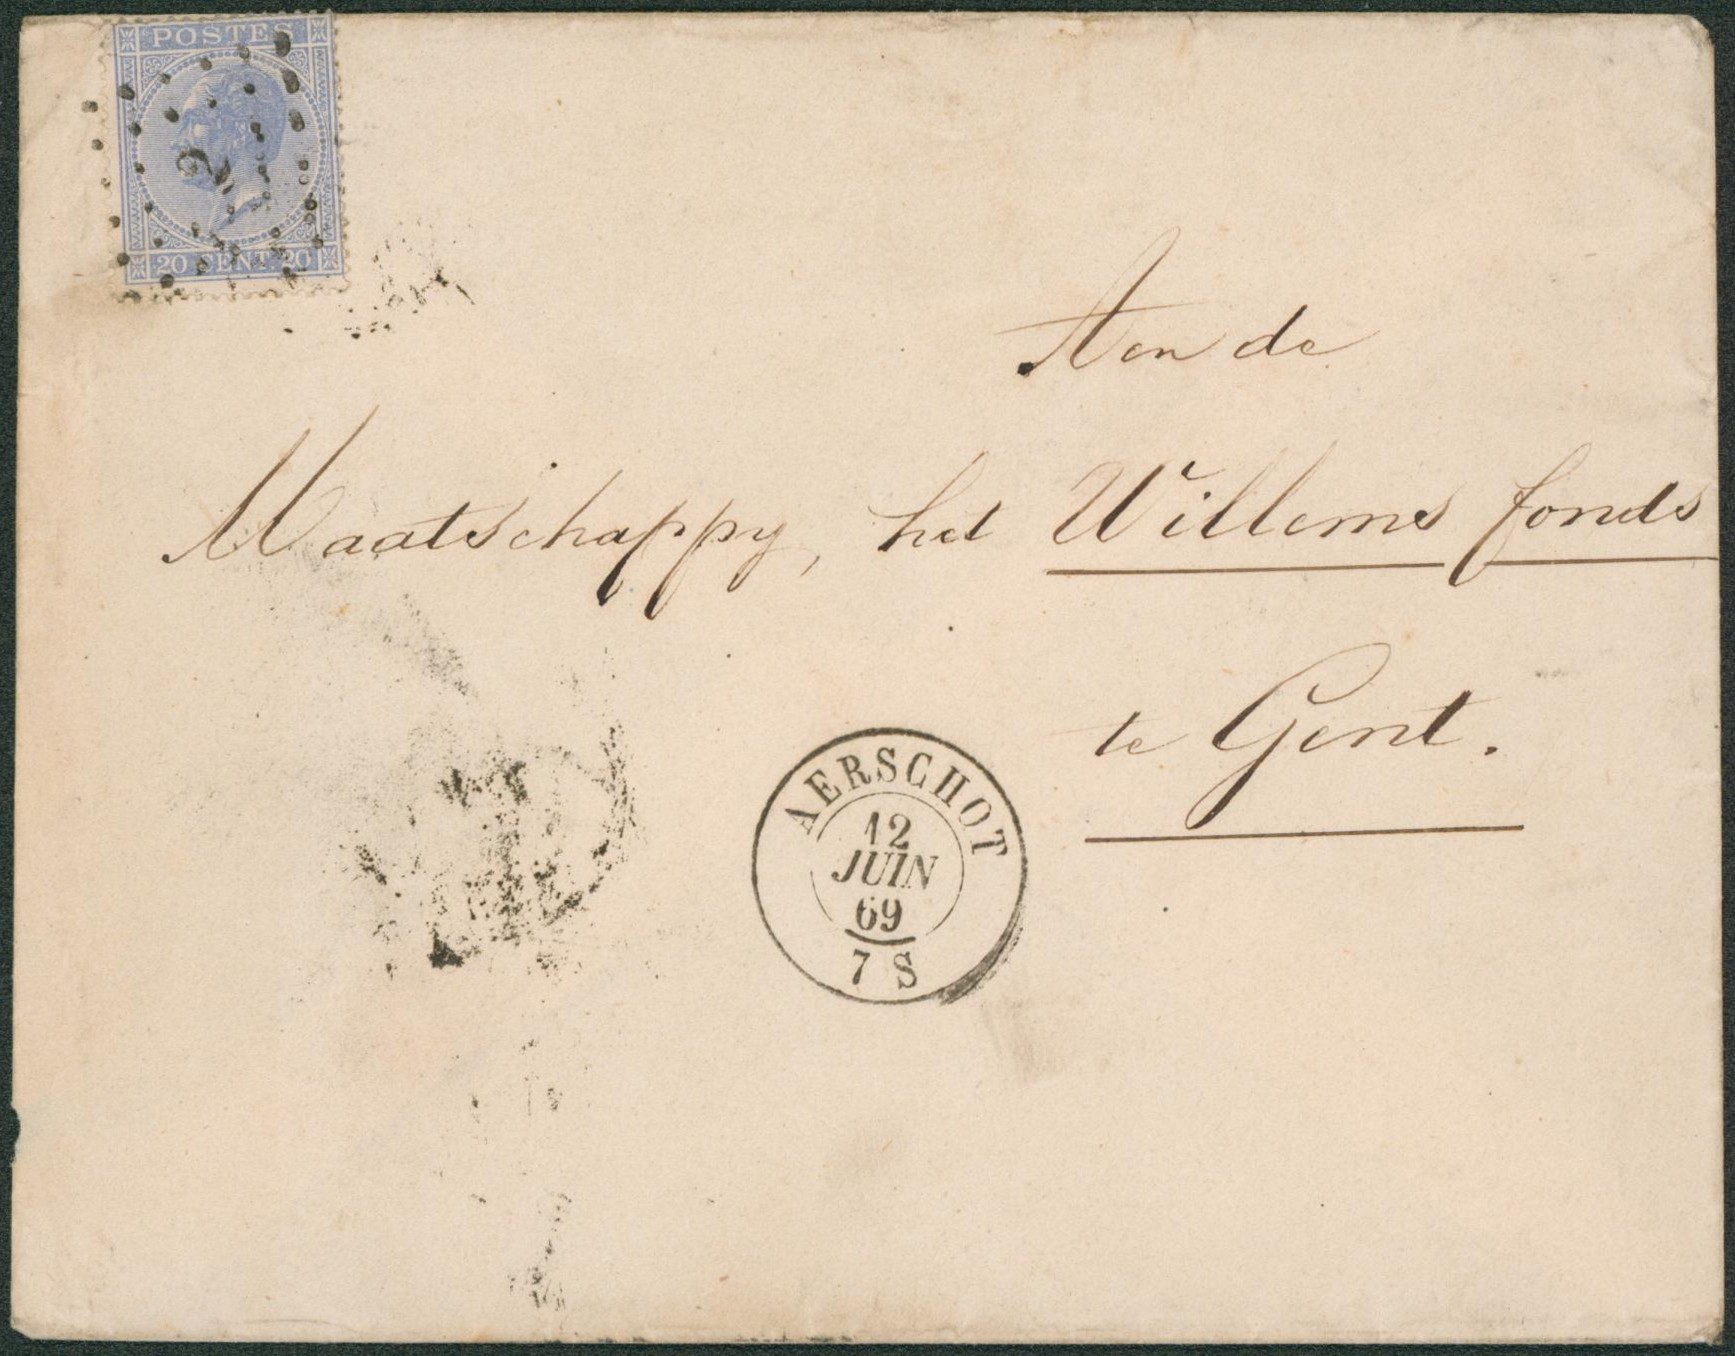 POSTES
2
20 CENT 20
Aan de
Maatschappy, het Willems fonds
te Gent.
AERSCHOT
12
JUIN
69
7 S